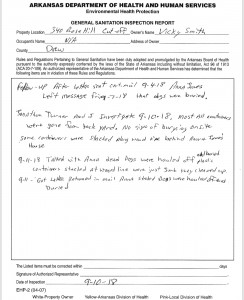 ARKANSAS DEPARTMENT OF HEALTH AND HUMAN SERVICES
Environmental Health Protection
GENERAL SANITATION INSPECTION REPORT
Property Location: 340 Rose Hill Cut off Owner: Vicky Smith
Occupant(s) Name: N/A Address of Owner:
County
Rules and Regulations Pertaining to General Sanitation were duly adopted and promulgated by the Arkansas Board of Health
pursuant to the authority expressly conferred by the laws of the State of Arkansas including without limitation, Act 96 of 1913
An authorized representative of the Arkansas Department of Health and Human Services has determined that the following
items are in violation of these Rules and Regulations:
Follow-up After letter sent out mail 9-4-18 Anna Jones
Left message 9-7-18 that dogs were buried.
Jonathan Turner And I Investigate 9-10-18, Most All containers
were gone from back yard. No sign of burying onsite
some containers were stacked along wood line behind Anna Jones
House
9-11-18 Talked with Anna dead dogs were hauled off
containers stacked at wood line were just
9-11- Got letter Returned in mail Anna stated Dogs were hauled off
buried
The Listed items must be corrected within days
Signature of Authorized Representative
Date of Inspection 9-10-18
EHP-2
White-Property Owner Yellow-Arkansas Division of Health Pink-Local Division of Health